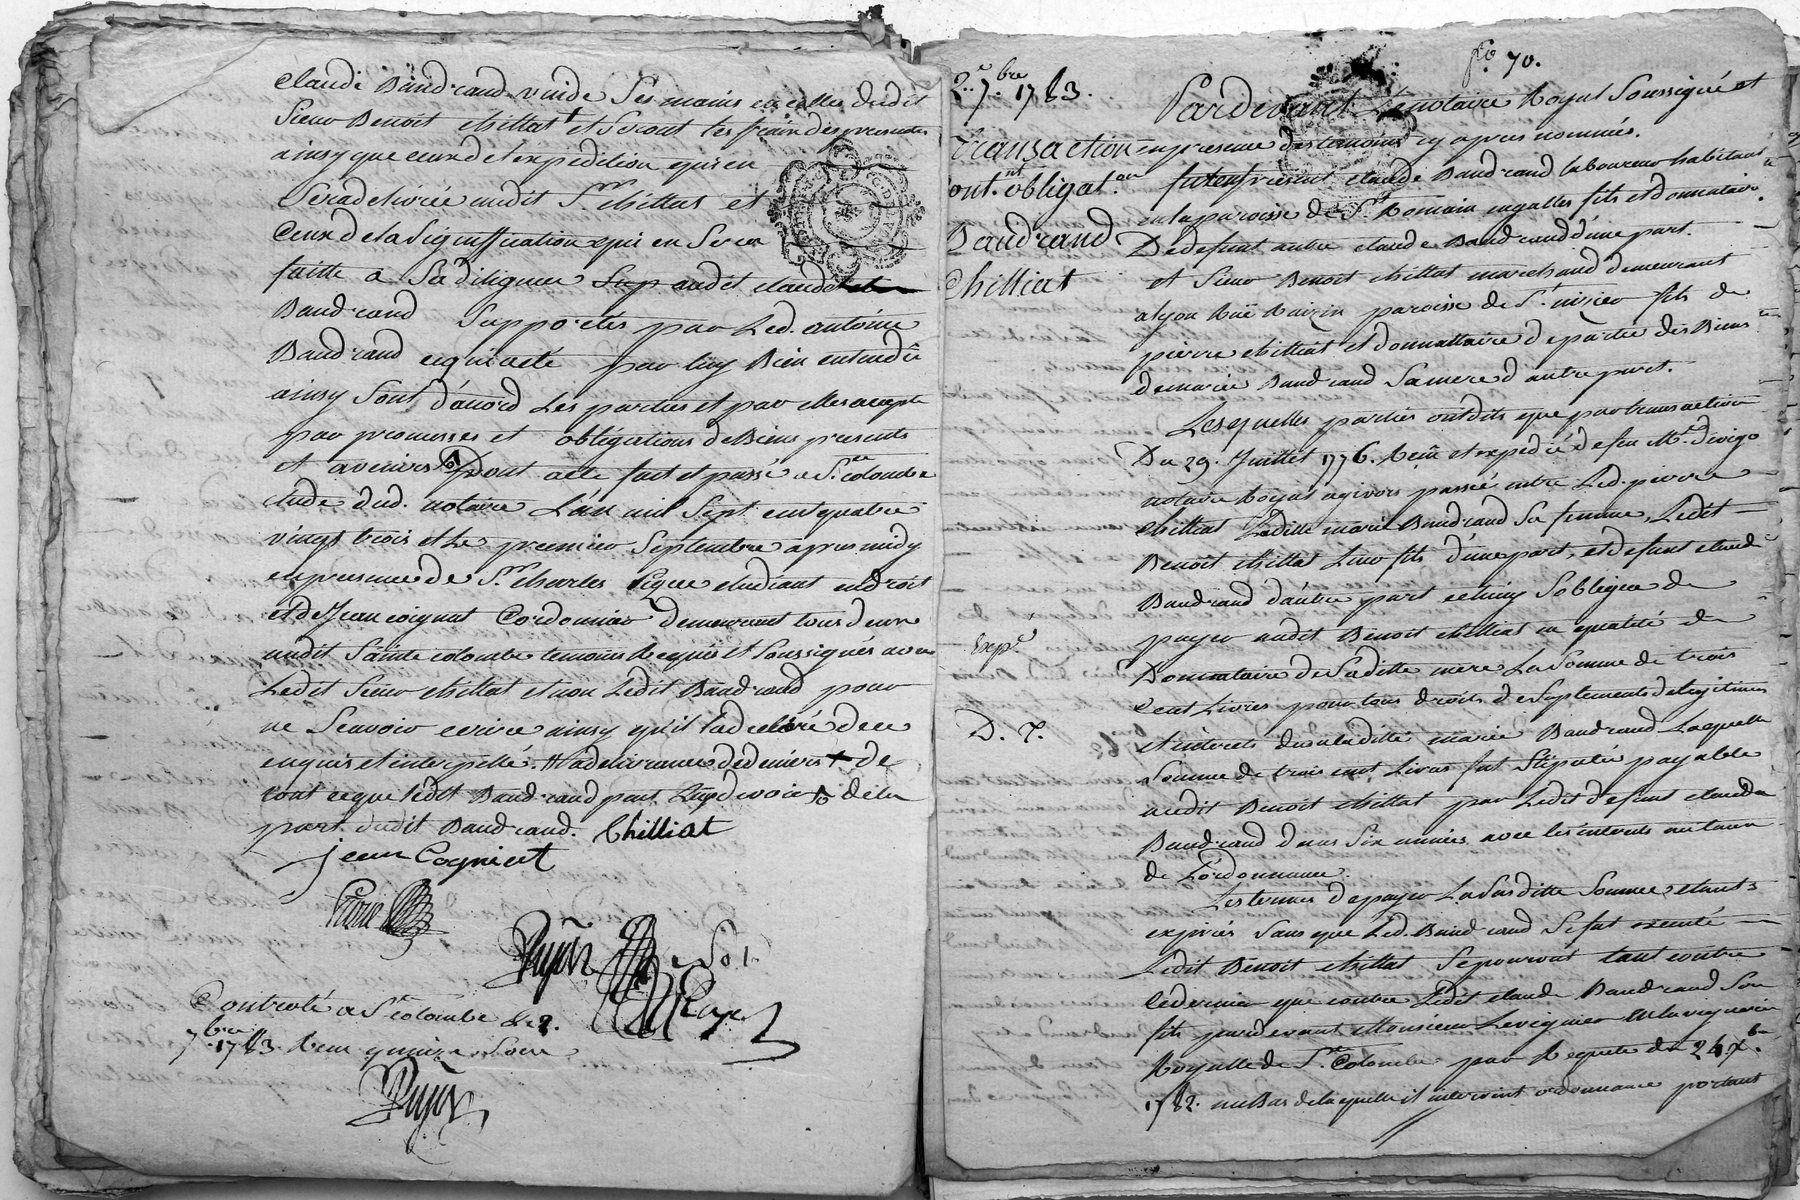 Claude Baudrand vuide ses mains en celles dudit
Sieur Benoit chilliat et seront les frais des presentes
ainsy que ceux de l'expedition qui en
sera delivrée audit Sr chilliat et
Ceux de la signiffication qui en sera
faitte a sa diligence audit claude
Baudrand supportés par Led. antoine
Baudrand acquiacté par luy Bien entendu
ainsy sont d'acord Les parties et par elles accepté
par promesses et obligations de Biens presents
et avenirs dont acte fait et passé a Ste colombe
étude dud. notaire L'an mil Sept cent quatre
vingt trois et Le premier Septembre apres midy
en presence de Sr charles étudiant en droit
et de Jean coignat Cordonnier demeurant tous deux
audit Sainte colombe temoins Requis et soussignés avec
Ledit Sieur chilliat et non Ledit Baudrand pour
ne Scavoir ecrire ainsy qu'il l'a declaré de ce
enquis et interpellé. # a delivrance de deniers + de
tout ce que ledit Baudrand peut Luy devoir de la
part dudit Baudrand. Chilliat
jean Cogniat
Controlé a Ste colombe Le 2.
7bre 1783. Reçu quinze sous
fo. 70.
2e 7bre 1783.
Transaction
cont.nt obligat.on
Baudrand
Chilliat
Exp.é
D. 7.
Pardevant Le notaire Royal Soussigné et
en presence des temoins cy apres nommés.
furent present claude Baudrand laboureur habitant
en la paroisse de St Romain en galles fils et donnataire
De defunt autre claude Baudrand d'une part.
et Sieur Benoit chilliat marchand demeurant
a lyon Rüe Raizin paroisse de St nizier fils de
pierre chilliat et donnattaire de partie des Biens
de marie Baudrand sa mere d'autre part.
Lesquelles parties ont dits que par transaction
Du 29. Juillet 1776. Reçüe et expediée de feu Me
notaire Royal a givors passée entre Led. pierre
Chilliat Laditte marie Baudrand sa femme, Ledit
Benoit chilliat Leur fils d'une part, et defunt claude
Baudrand d'autre part celuy cy s'obligea de
payer audit Benoit chilliat en qualité de
Donnataire de Saditte mere La Somme de trois
Cent Livres pour tous droits de Suplements de legitimes
et interets dus a laditte marie Baudrand Laquelle
Somme de trois cent Livres fut Stipulée payable
audit Benoit chilliat par Ledit defunt claude
Baudrand dans Six années avec les interets au taux
de L'ordonnance.
Les termes de payer La Susditte Somme etants
expirés sans que Led. Baudrand se fut executé
Ledit Benoit chilliat Se pourvut tant contre
Ce dernier que contre Ledit claude Baudrand Son
fils pardevant Monsieur Le viguier en la viguerie
Royalle de Ste Colombe par Requete du 24 Xbre
1782. au Bas de laquelle il intervint ordonnance portant